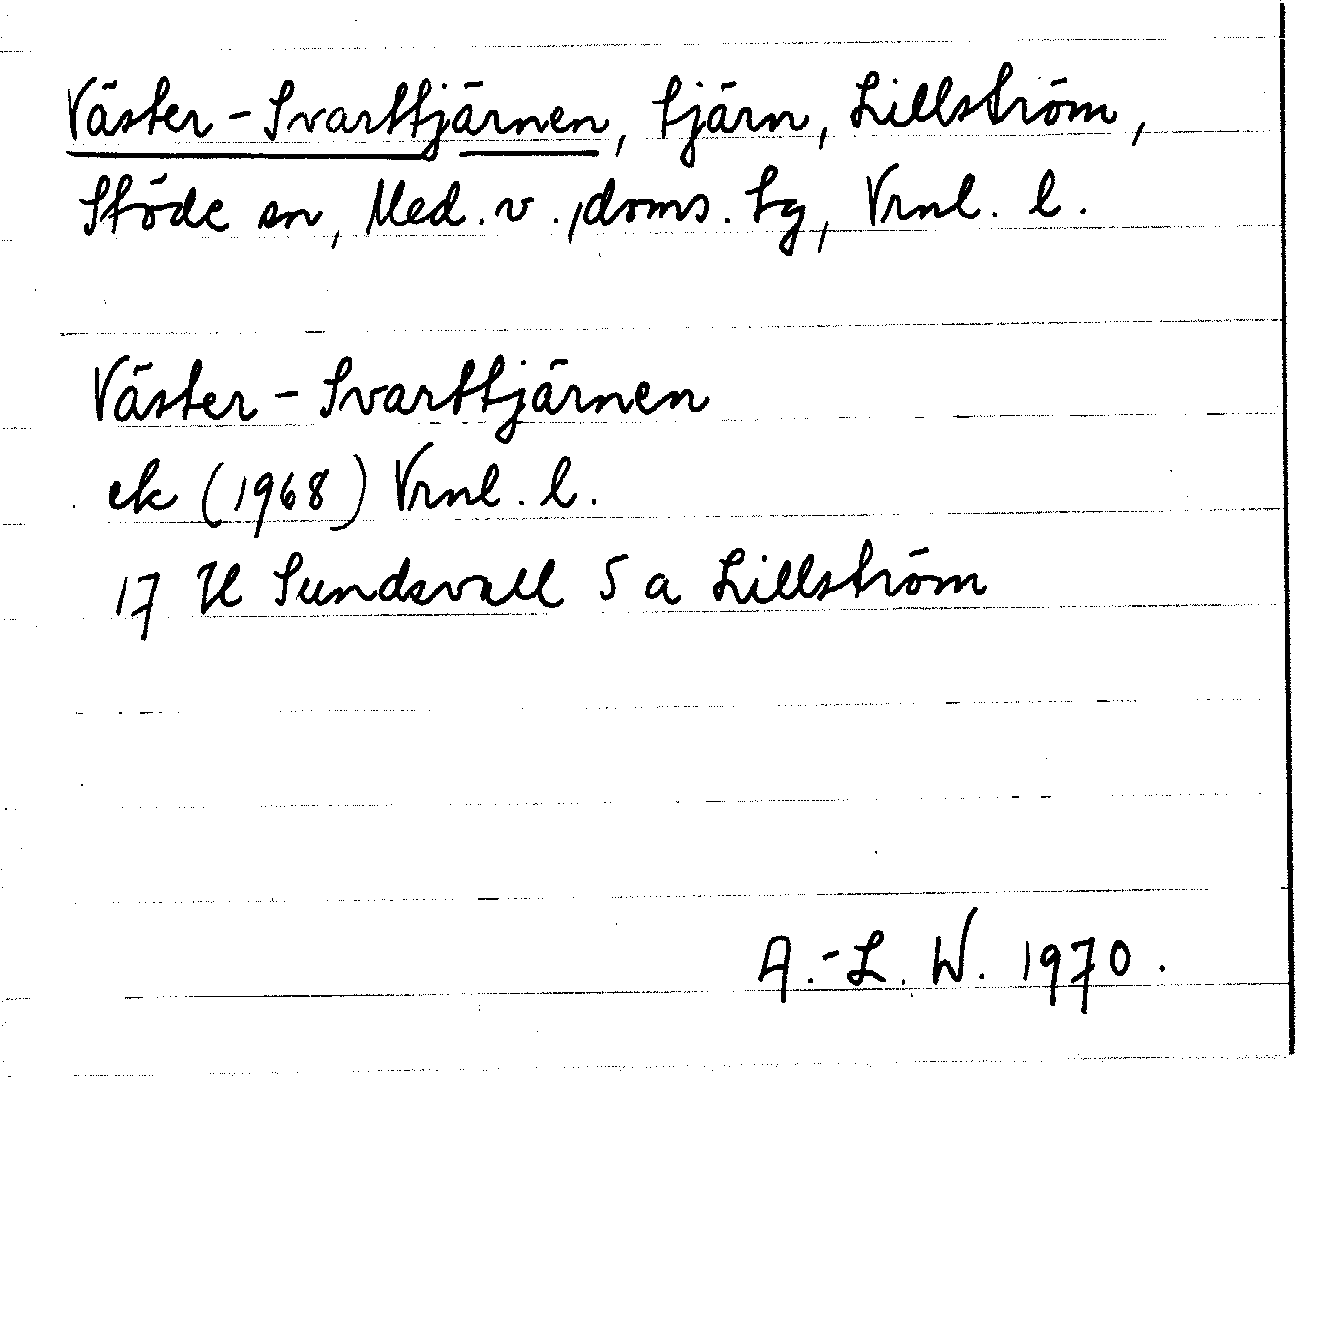 Väster-Svarttjärnen, tjärn, Lillström,
Stöde sn, Med. v., doms. tg, Vrnl. l.
Väster-Svarttjärnen
ek (1968) Vrnl. l.
17 H Sundsvall 5 a Lillström
A.-L. W. 1970.